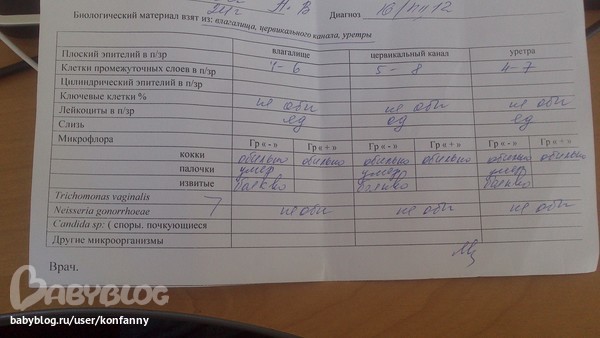 А. В Диагноз
Биологический материал взят из: влагалища, цервикального канала, уретры
влагалище цервикальный канал уретра
Плоский эпителий в п/зр 4-6 5-8 4-7
Клетки промежуточных слоев в п/зр
Цилиндрический эпителий в п/зр
Ключевые клетки % не обн не обн не обн
Лейкоциты в п/зр ед ед ед
Слизь
Микрофлора Гр« - » Гр« + » Гр« - » Гр« + » Гр« - » Гр« + »
кокки обильно обильно обильно обильно обильно обильно
палочки умер умер умер
извитые
Trichomonas vaginalis
Neisseria gonorrhoeae не обн не обн не обн
Candida sp: ( споры. почкующиеся
Другие микроорганизмы
Врач.
BABYBLOG
babyblog.ru/user/konfanny